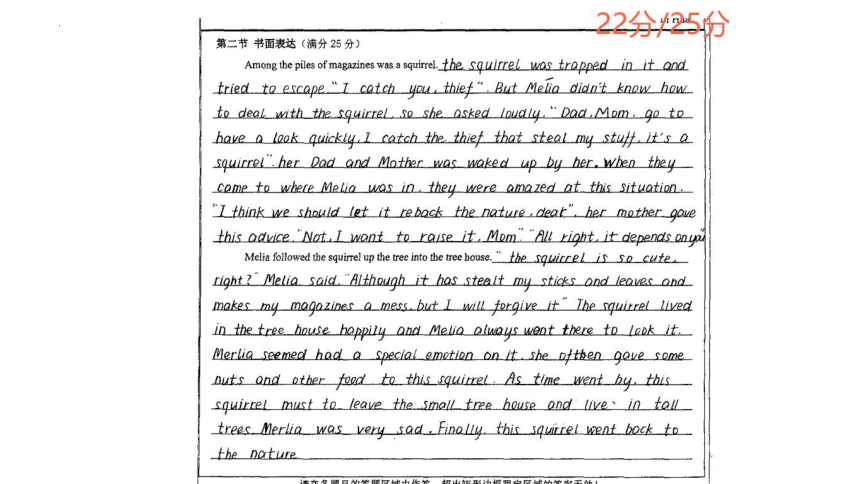 22分/25分
第二节 书面表达（满分 25 分）
Among the piles of magazines was a squirrel. the squirrel was trapped in it and
tried to escape. "I catch you, thief". But Melia didn't know how
to deal with the squirrel, so she asked loudly. "Dad, Mom, go to
have a look quickly. I catch the thief that steal my stuff, it's a
squirrel". her Dad and Mother was waked up by her. When they
came to where Melia was in, they were amazed at this situation.
"I think we should let it reback the nature, dear". her mother gave
this advice. "Not, I want to raise it, Mom" "All right, it depends on you"
Melia followed the squirrel up the tree into the tree house. " the squirrel is so cute,
right?" Melia said. "Although it has stealt my sticks and leaves and
makes my magazines a mess, but I will forgive it" The squirrel lived
in the tree house happily and Melia always went there to look it.
Merlia seemed had a special emotion on it. she ofthen gave some
nuts and other food to this squirrel. As time went by, this
squirrel must to leave the small tree house and live in tall
trees. Merlia was very sad. Finally, this squirrel went back to
the nature
请在各题目的答题区域内作答，超出矩形边框限定区域的答案无效！